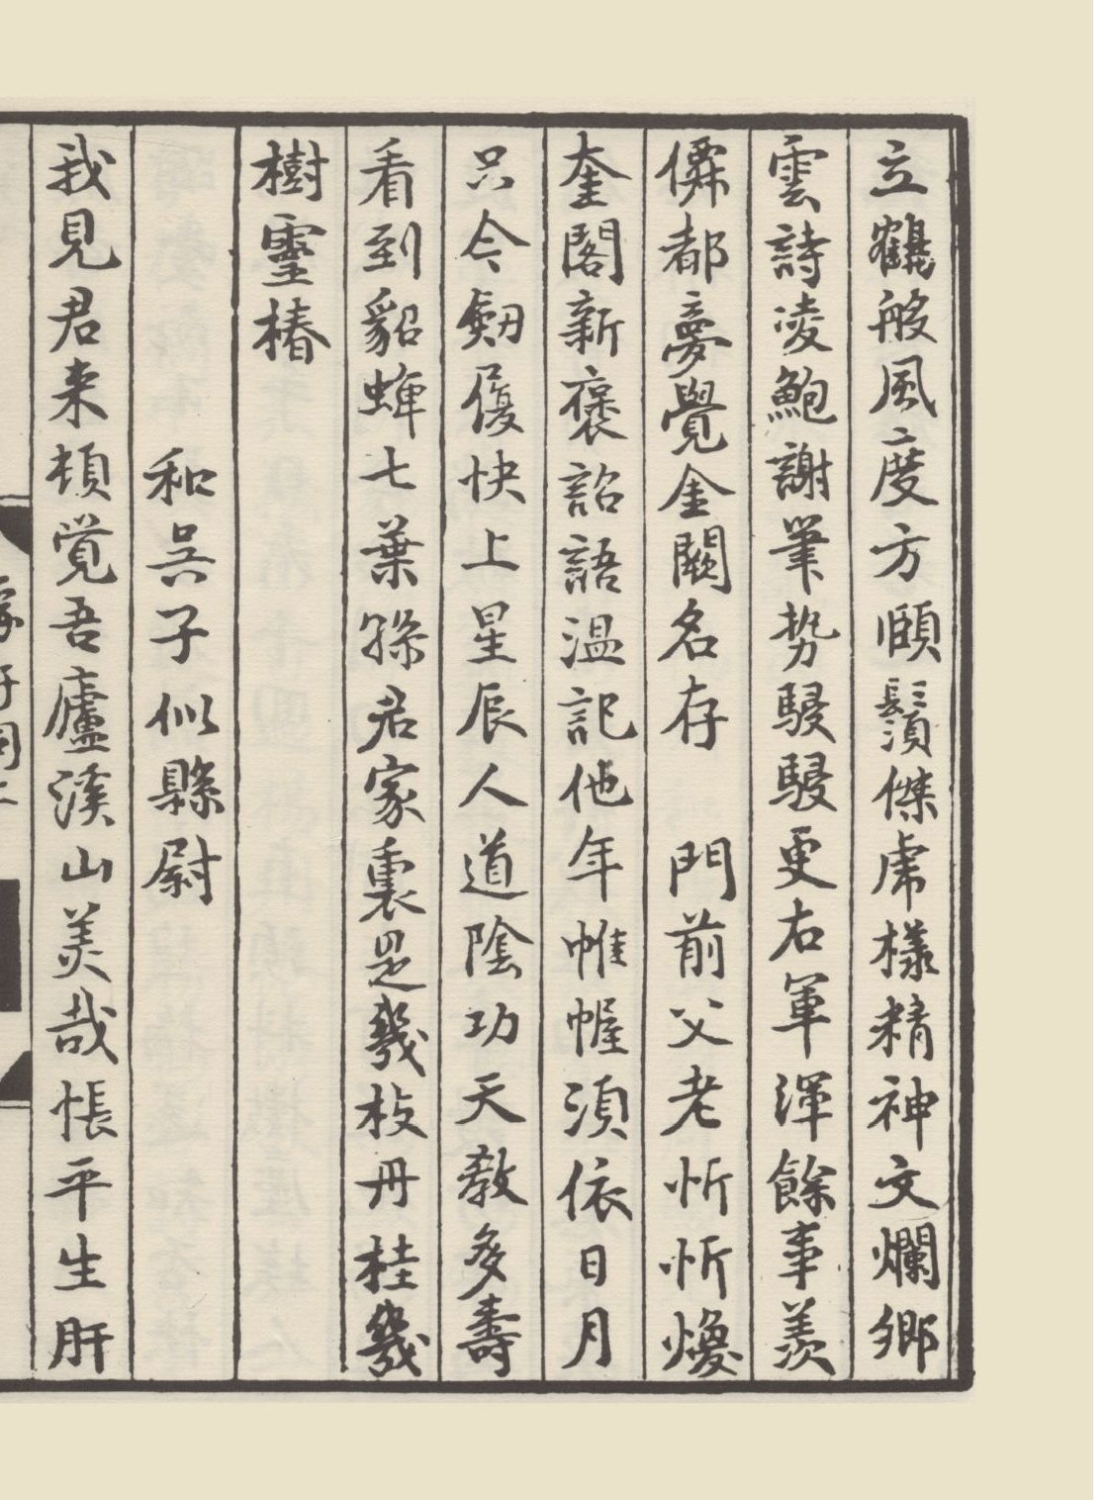 立鶴般風度方頤鬚傑虎樣精神文爛鄉
雲詩凌鮑謝筆勢駸駸更右軍渾餘事羨
僊都夢覺金闕名存　門前父老忻忻煥
奎閣新褒詔語溫記他年帷幄須依日月
只今劒履快上星辰人道陰功天教多壽
看到貂蟬七葉孫君家裏是幾枝丹桂幾
樹靈椿
和吳子似縣尉
我見君来頓覚吾廬溪山美哉悵平生肝